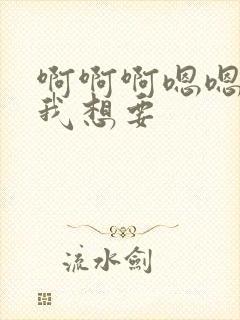 啊啊啊嗯嗯
我想要
流水劍